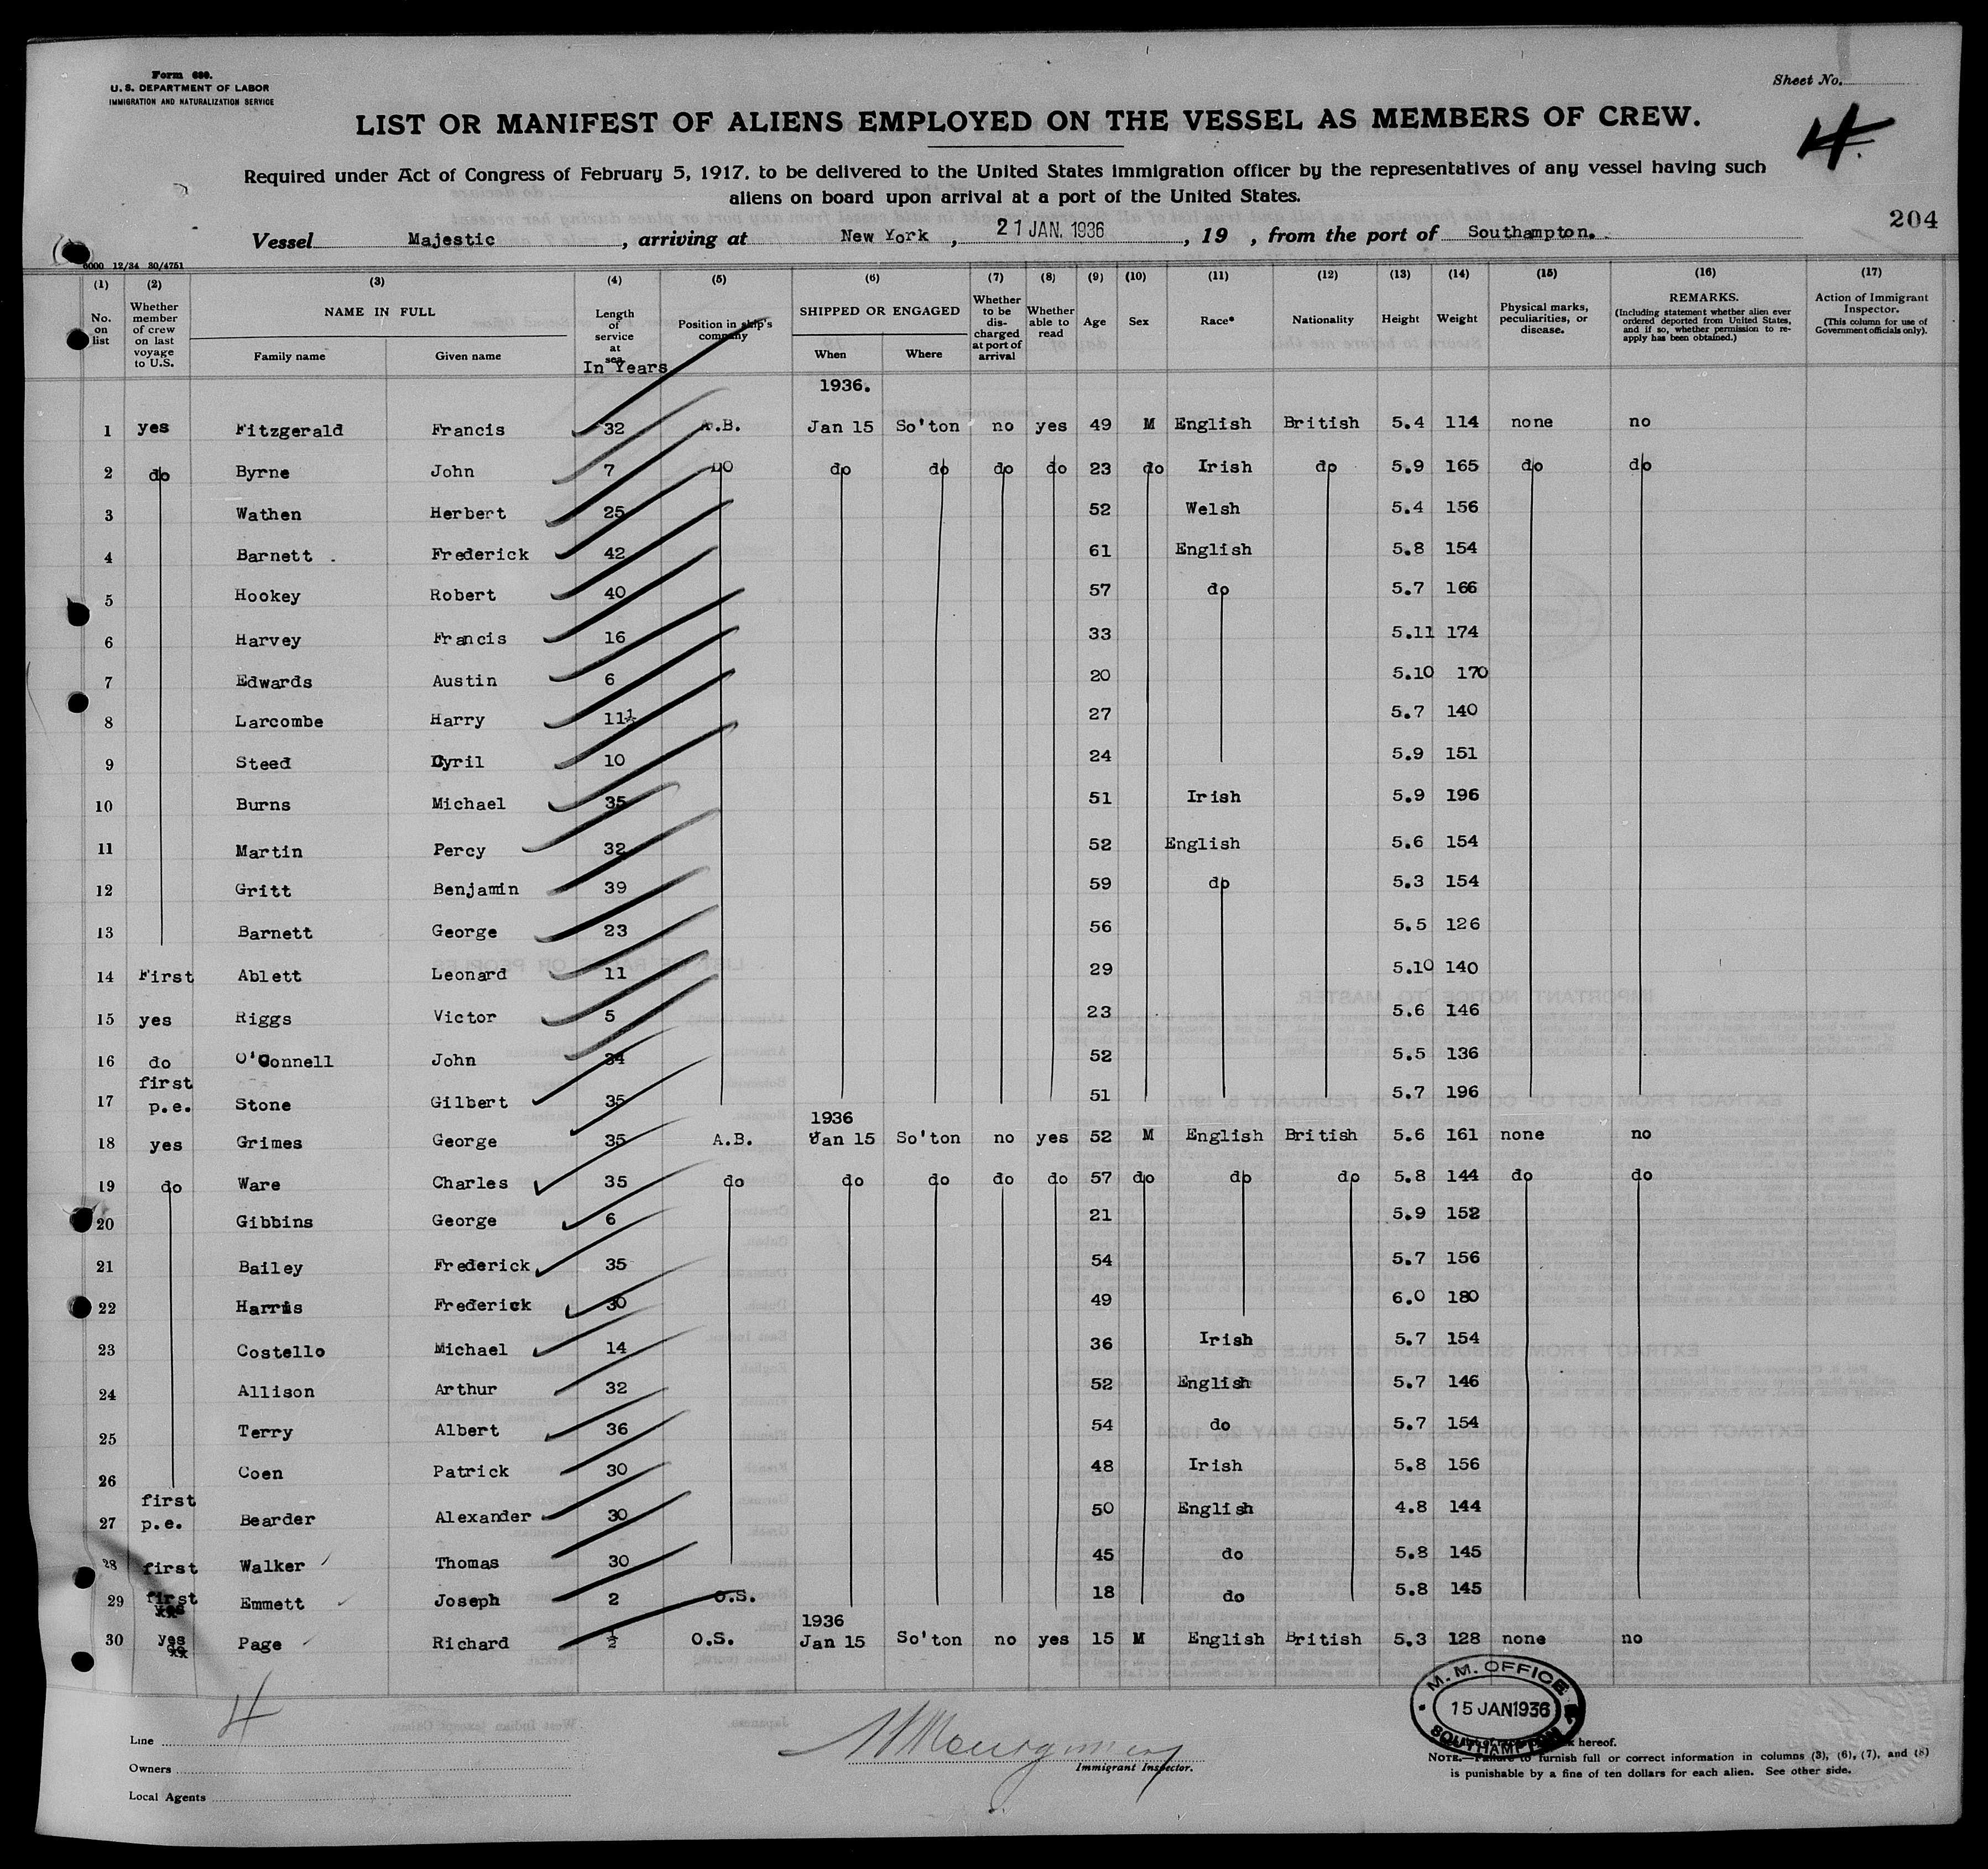 Form 680.
U. S. DEPARTMENT OF LABOR
IMMIGRATION AND NATURALIZATION SERVICE
Sheet No.
LIST OR MANIFEST OF ALIENS EMPLOYED ON THE VESSEL AS MEMBERS OF CREW.
4.
Required under Act of Congress of February 5, 1917, to be delivered to the United States immigration officer by the representatives of any vessel having such
aliens on board upon arrival at a port of the United States.
204
Vessel Majestic, arriving at New York, 21 JAN. 1936, 19 , from the port of Southampton.
6000 12/34 30/4751
(1) (2) (3) (4) (5) (6) (7) (8) (9) (10) (11) (12) (13) (14) (15) (16) (17)
No. on list
Whether member of crew on last voyage to U.S.
NAME IN FULL
Family name Given name
Length of service at sea
In Years
Position in ship's company
SHIPPED OR ENGAGED
When Where
Whether to be discharged at port of arrival
Whether able to read
Age Sex Race* Nationality Height Weight
Physical marks, peculiarities, or disease.
REMARKS.
(Including statement whether alien ever ordered deported from United States, and if so, whether permission to reapply has been obtained.)
Action of Immigrant Inspector.
(This column for use of Government officials only).
1936.
1 yes Fitzgerald Francis 32 A.B. Jan 15 So'ton no yes 49 M English British 5.4 114 none no
2 do Byrne John 7 DO do do do do 23 do Irish do 5.9 165 do do
3 Wathen Herbert 25 52 Welsh 5.4 156
4 Barnett . Frederick 42 61 English 5.8 154
5 Hookey Robert 40 57 do 5.7 166
6 Harvey Francis 16 33 5.11 174
7 Edwards Austin 6 20 5.10 170
8 Larcombe Harry 11½ 27 5.7 140
9 Steed Cyril 10 24 5.9 151
10 Burns Michael 35 51 Irish 5.9 196
11 Martin Percy 32 52 English 5.6 154
12 Gritt Benjamin 39 59 do 5.3 154
13 Barnett George 23 56 5.5 126
14 First Ablett Leonard 11 29 5.10 140
15 yes Riggs Victor 5 23 5.6 146
16 do O'Connell John 34 52 5.5 136
first
17 p.e. Stone Gilbert 35 51 5.7 196
1936
18 yes Grimes George 35 A.B. Jan 15 So'ton no yes 52 M English British 5.6 161 none no
19 do Ware Charles 35 do do do do do 57 do do do 5.8 144 do do
20 Gibbins George 6 21 5.9 152
21 Bailey Frederick 35 54 5.7 156
22 Harris Frederick 30 49 6.0 180
23 Costello Michael 14 36 Irish 5.7 154
24 Allison Arthur 32 52 English 5.7 146
25 Terry Albert 36 54 do 5.7 154
26 Coen Patrick 30 48 Irish 5.8 156
first
27 p.e. Bearder Alexander 30 50 English 4.8 144
28 first Walker Thomas 30 45 do 5.8 145
29 first Emmett Joseph 2 O.S. 18 do 5.8 145
1936
30 yes Page Richard ½ O.S. Jan 15 So'ton no yes 15 M English British 5.3 128 none no
4
M. M. OFFICE
15 JAN 1936
SOUTHAMPTON
Line
Owners
Local Agents
Immigrant Inspector.
hereof.
NOTE.—Failure to furnish full or correct information in columns (3), (6), (7), and (8)
is punishable by a fine of ten dollars for each alien. See other side.